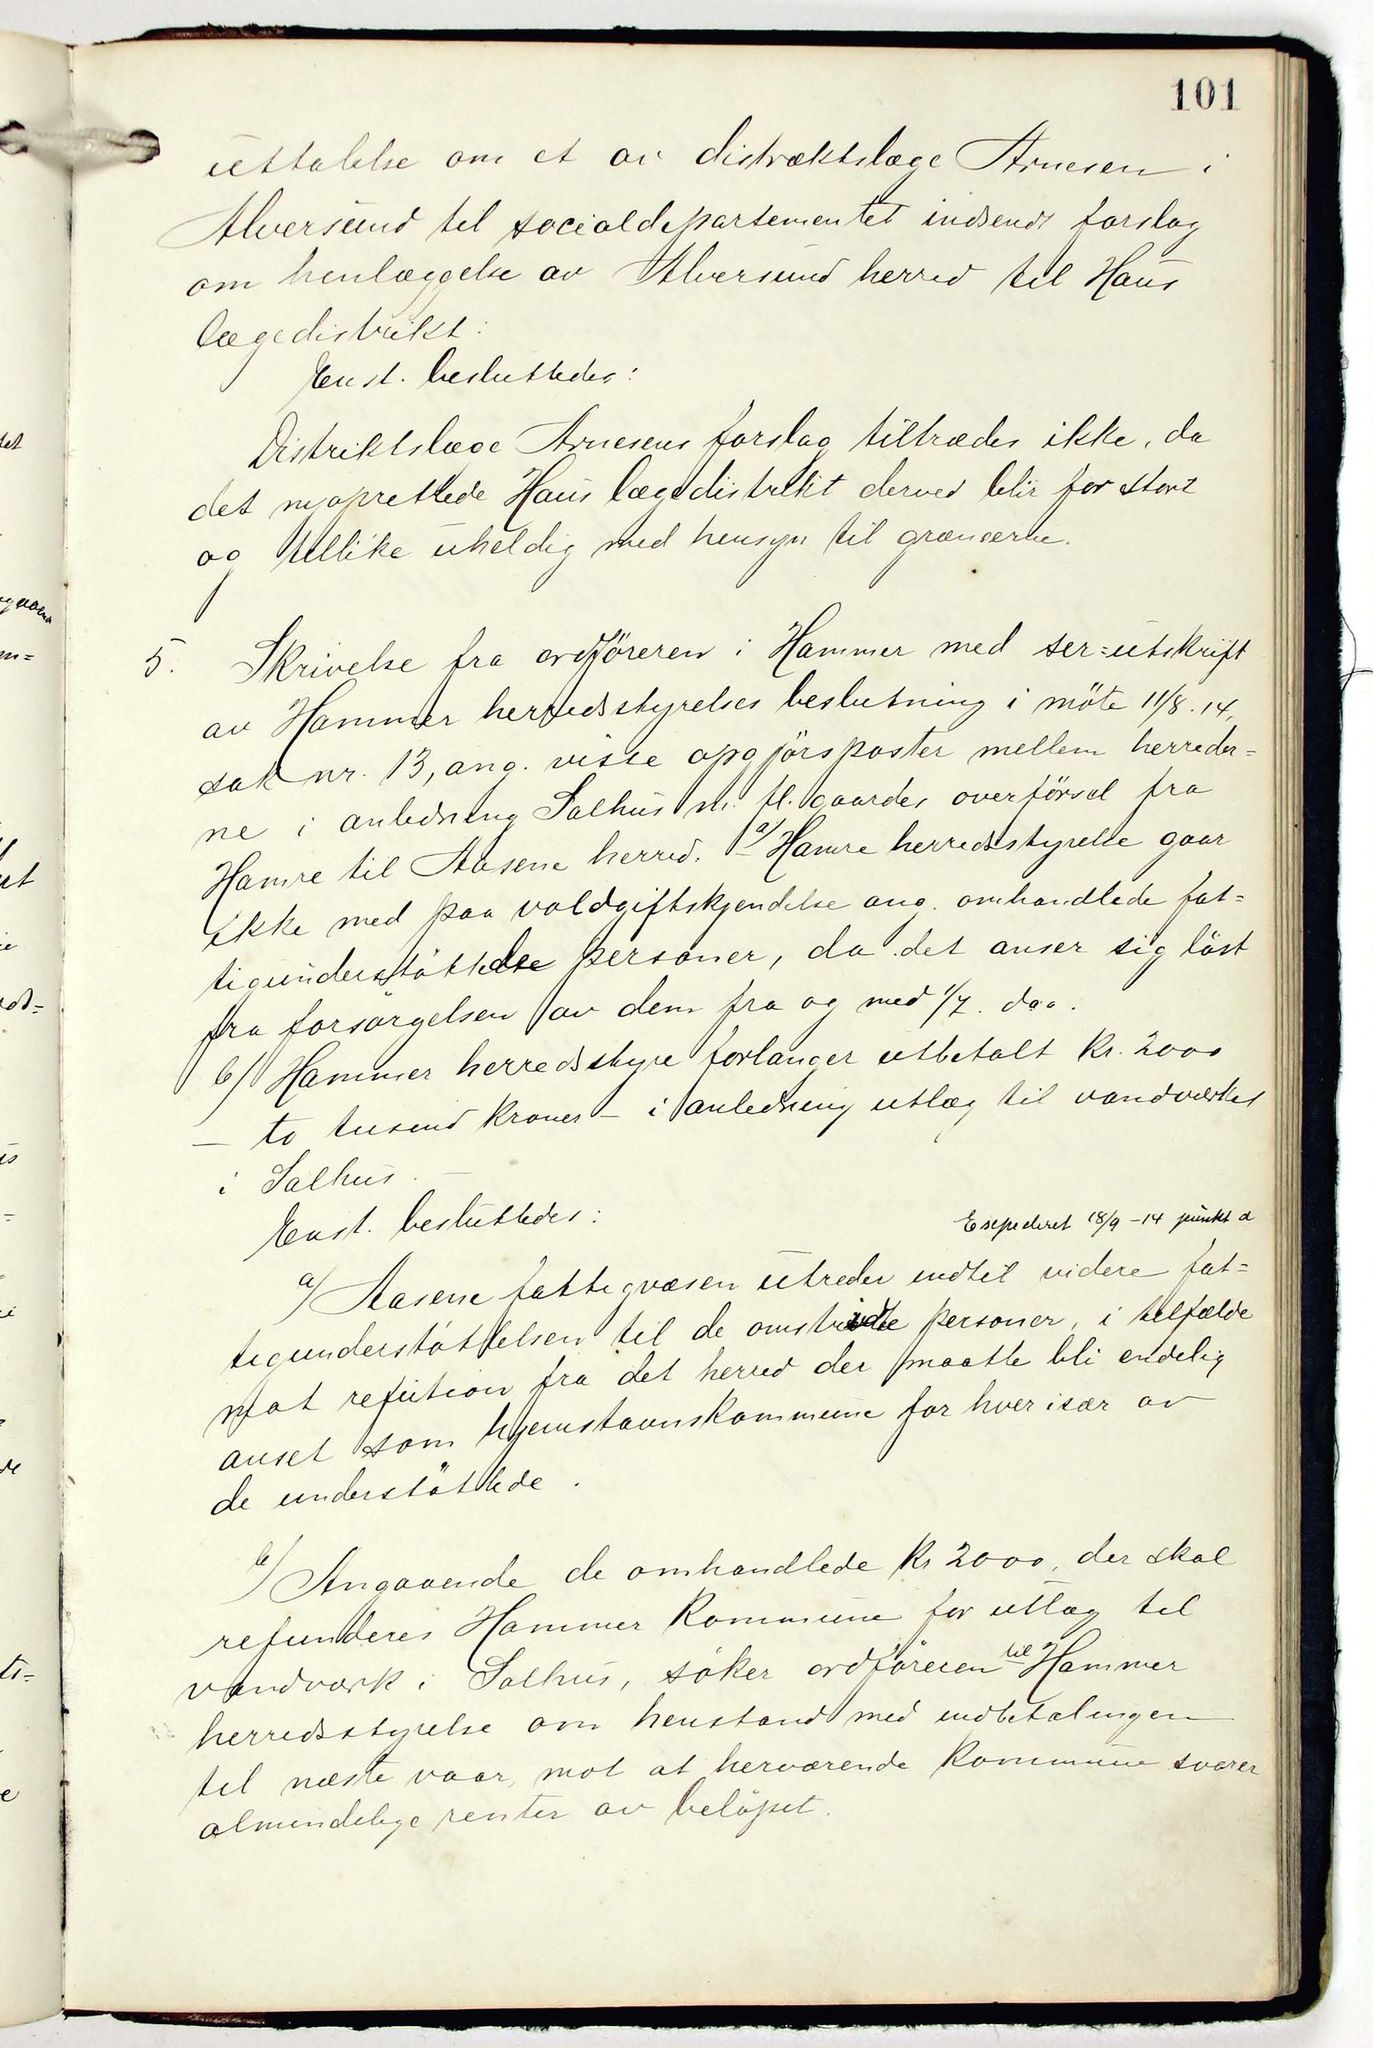 101
uttalelse om et av distræktslæge Arnesen i
Alversund til socialdepartementet indsendt forslag
om henlæggelse av Alversund herred til Haus
lægedistrikt:
Enst. besluttedes:
Distriktslæge Arnesens forslag tiltrædes ikke, da
det nyoprettede Haus lægedistrikt derved blir for stort
og tillike uheldig med hensyn til grænserne.
5. Skrivelse fra ordføreren i Hammer med sær=utskrift
av Hammer herredsstyrelses beslutning i møte 11/8.14,
sak nr. 13, ang. visse opgjørsposter mellem herreder=
ne i anledning Salhus m. fl. gaardes overførsel fra
Hamre til Aasene herred. a/ Hamre herredsstyrelse gaar
ikke med paa voldgiftskjendelse ang. omhandlede fat=
tigunderstøttede personer, da det anser sig løst
fra forsørgelsen av dem fra og med 1/7. d.a.
b/ Hammer herredsstyre forlanger utbetalt kr. 2000
– to tusend kroner – i anledning utlæg til vandværket
i Salhus. –
Enst. besluttedes:
Exepederet 18/9 –14 punkt a
a/ Aasene fattigvæsen utreder indtil videre fat=
tigunderstøttelsen til de omstridte personer, i tilfælde
mot refution fra det herred der maatte bli endelig
anset som hjemstavnskommune for hver især av
de understøttede.
b/ Angaaende de omhandlede kr 2000, der skal
refunderes Hammer kommune for utlæg til
vandværk i Salhus, søker ordføreren til Hammer
herredsstyrelse om henstand med indbetalingen
til næste vaar, mot at herværende kommune svarer
almindelige renter av beløpet.